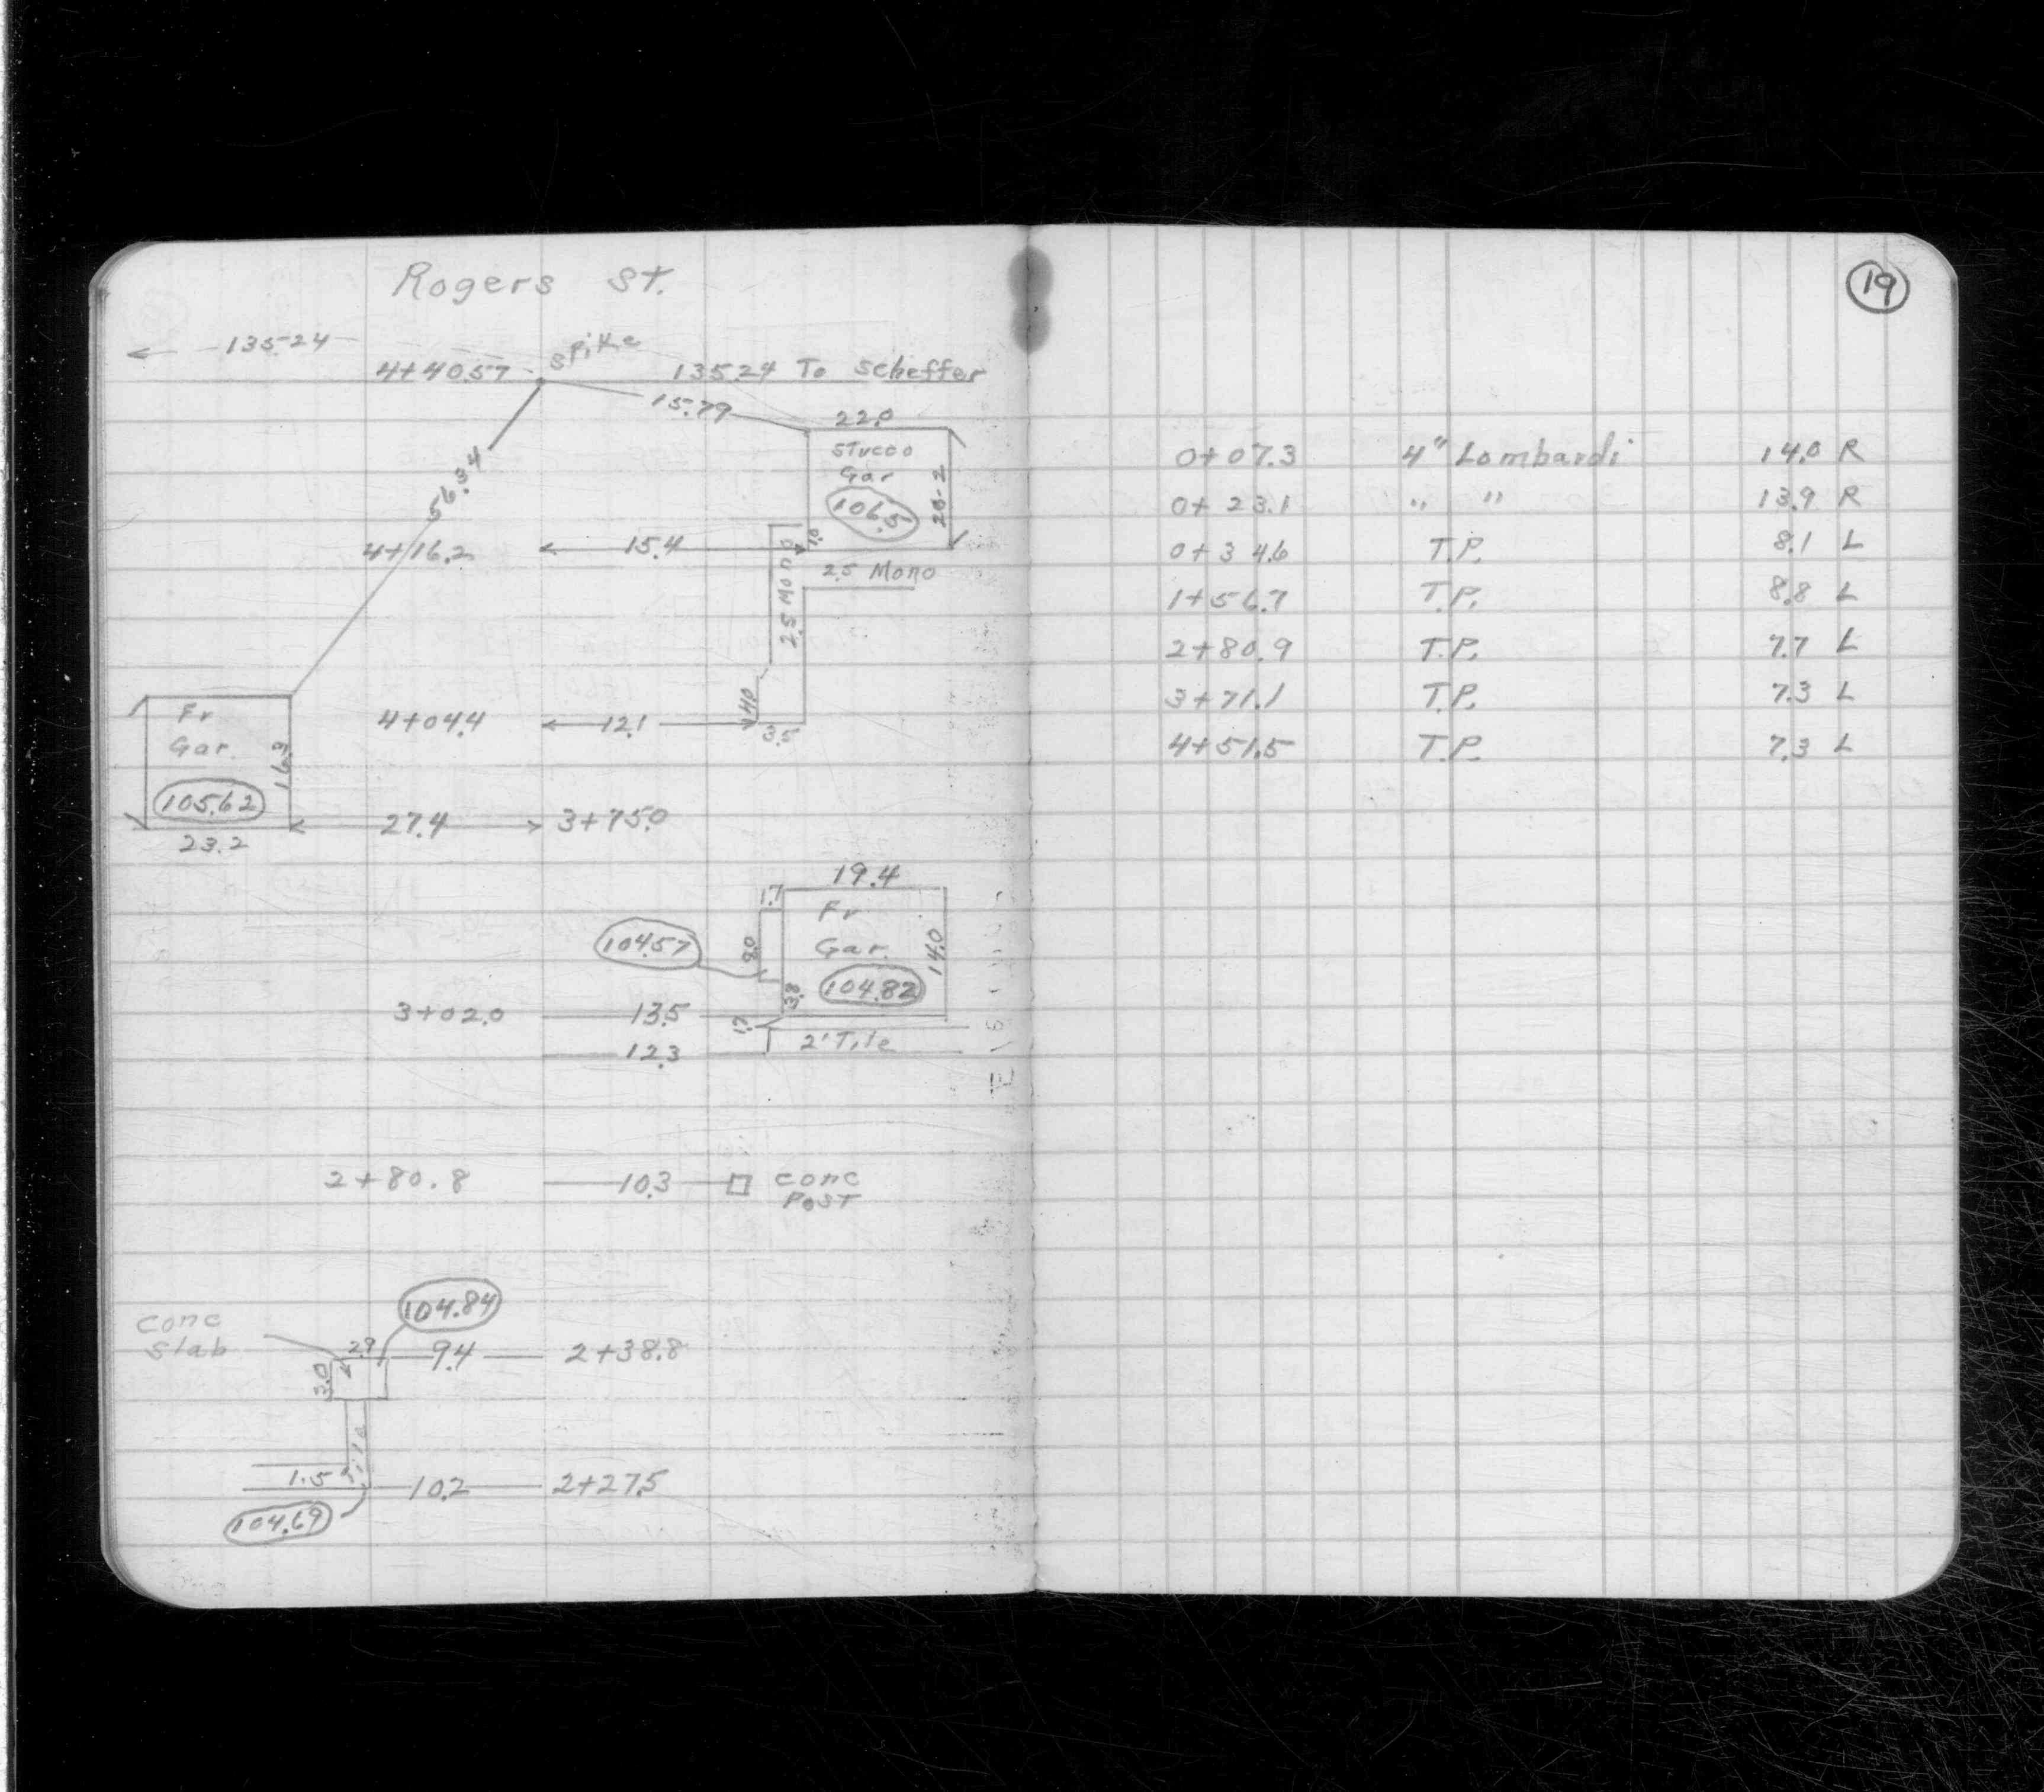 Rogers St.
135.24
4+40.57 Spike 135.24 To Scheffer
15.79
22.0
Stucco
Gar
106.5
20.2
56.34
4+16.2 15.4 1.0
2.5 Mono
2.5 Mono
4.0
4+04.4 12.1
3.5
Fr
Gar.
16.3
105.62
27.4 3+75.0
23.2
19.4
1.7
Fr
Gar.
104.57
8.0
14.0
104.82
3.8
3+02.0 13.5
1.7
12.3 2' Tile
2+80.8 10.3 Conc
Post
104.84
Conc
Slab
2.9 9.4 2+38.8
3.0
Tile
1.5' 10.2 2+27.5
104.69
19
0+07.3 4" Lombardi 14.0 R
0+23.1 " " 13.9 R
0+34.6 T.P. 8.1 L
1+56.7 T.P. 8.8 L
2+80.9 T.P. 7.7 L
3+71.1 T.P. 7.3 L
4+51.5 T.P. 7.3 L